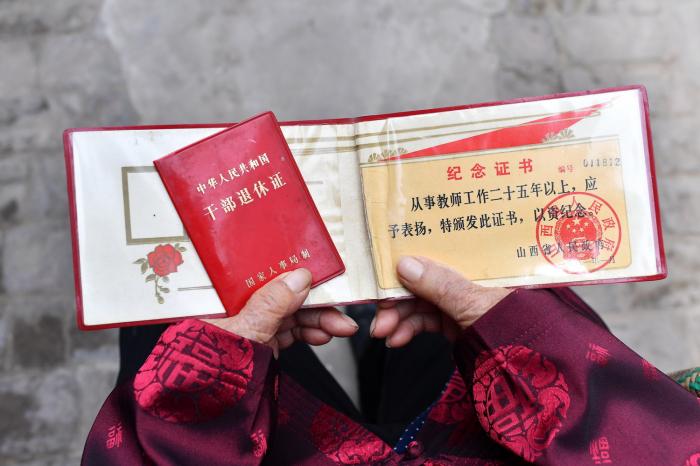 中华人民共和国
干部退休证
国家人事局制
纪念证书
编号 011812
从事教师工作二十五年以上，应
予表扬，特颁发此证书，以资纪念。
山西省人民政府